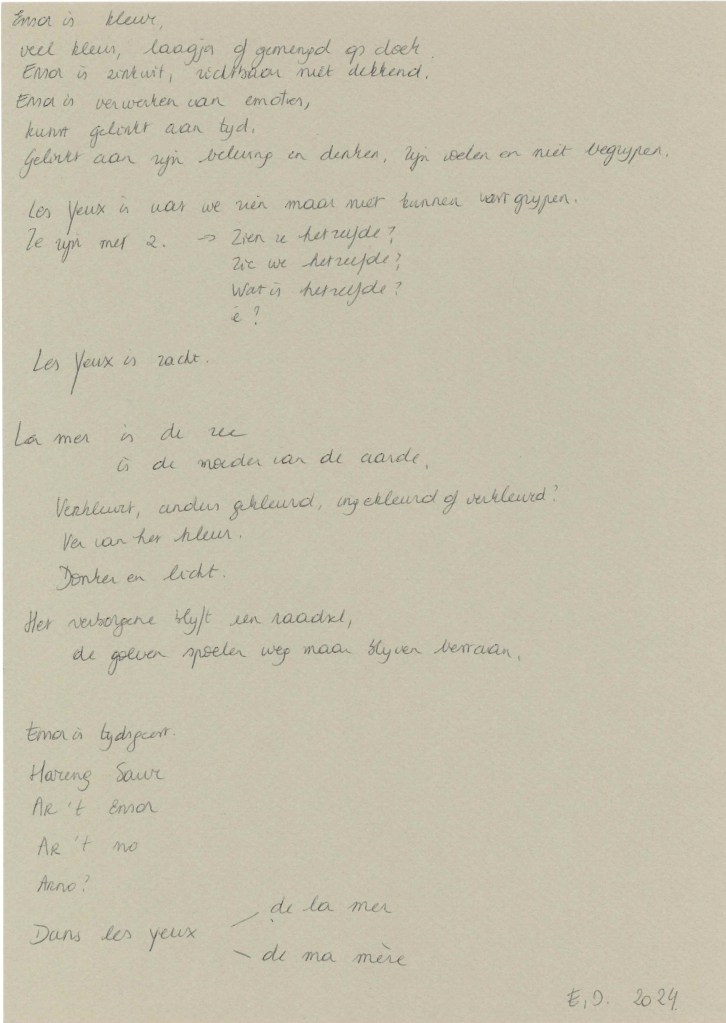 Ensor is kleur,
veel kleur, laagja of gemengd op doek.
Ensor is zinkwit, zichtbaar niet dekkend.
Ensor is verwerken van emoties,
kunst gelinkt aan tijd.
Gelinkt aan zijn beleving en denken, zijn voelen en niet begrijpen.
Les Yeux is wat we zien maar niet kunnen vastgrijpen.
Ze zijn met 2. → Zien ze hetzelfde?
Zie we hetzelfde?
Wat is hetzelfde?
è?
Les Yeux is zacht.
La mer is de zee
is de moeder van de aarde.
Verkleurt, anders gekleurd, ingekleurd of verkleurd?
Ver van het kleur.
Donker en licht.
Het verborgene blijft een raadsel,
de golven spoelen weg maar blijven bestaan.
Ensor is tijdsgeest.
Hareng Saur
AR 't Ensor
AR 't no
Arno?
Dans les yeux
de la mer
de ma mère
E.D. 2024